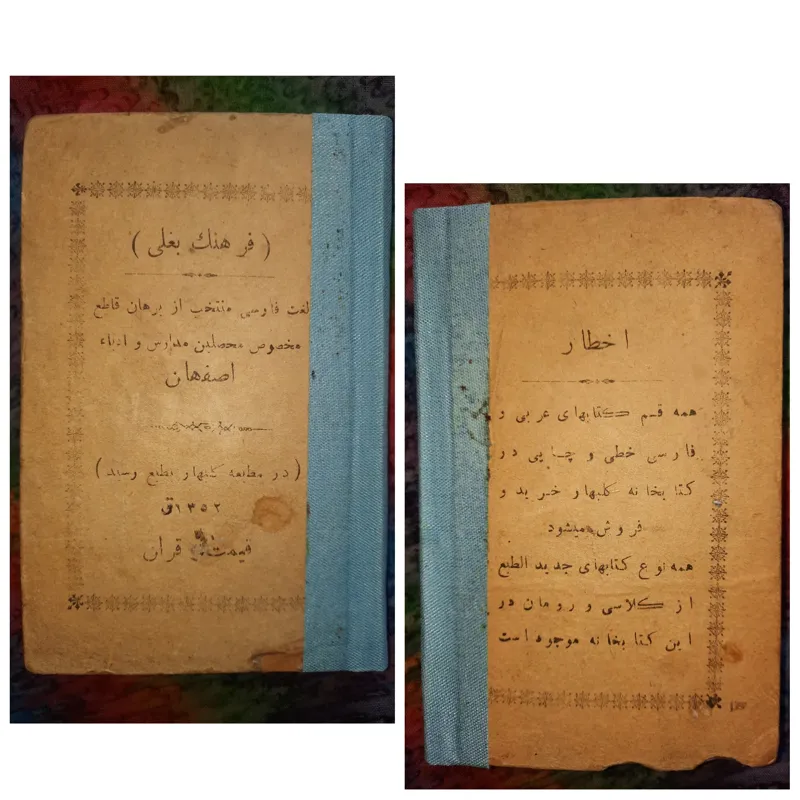 ( فرهنك بغلی )
لغت فارسی منتخب از برهان قاطع
مخصوص محصلین مدارس و ادباء
اصفهان
( در مطبعه گلبهار بطبع رسید )
۱۳۵۲ق
قیمت قران
اخطار
همه قسم کتابهای عربی و
فارسی خطی و چاپی در
کتابخانه گلبهار خرید و
فروش میشود
همه نوع کتابهای جدید الطبع
از کلاسی و رومان در
این کتابخانه موجود است